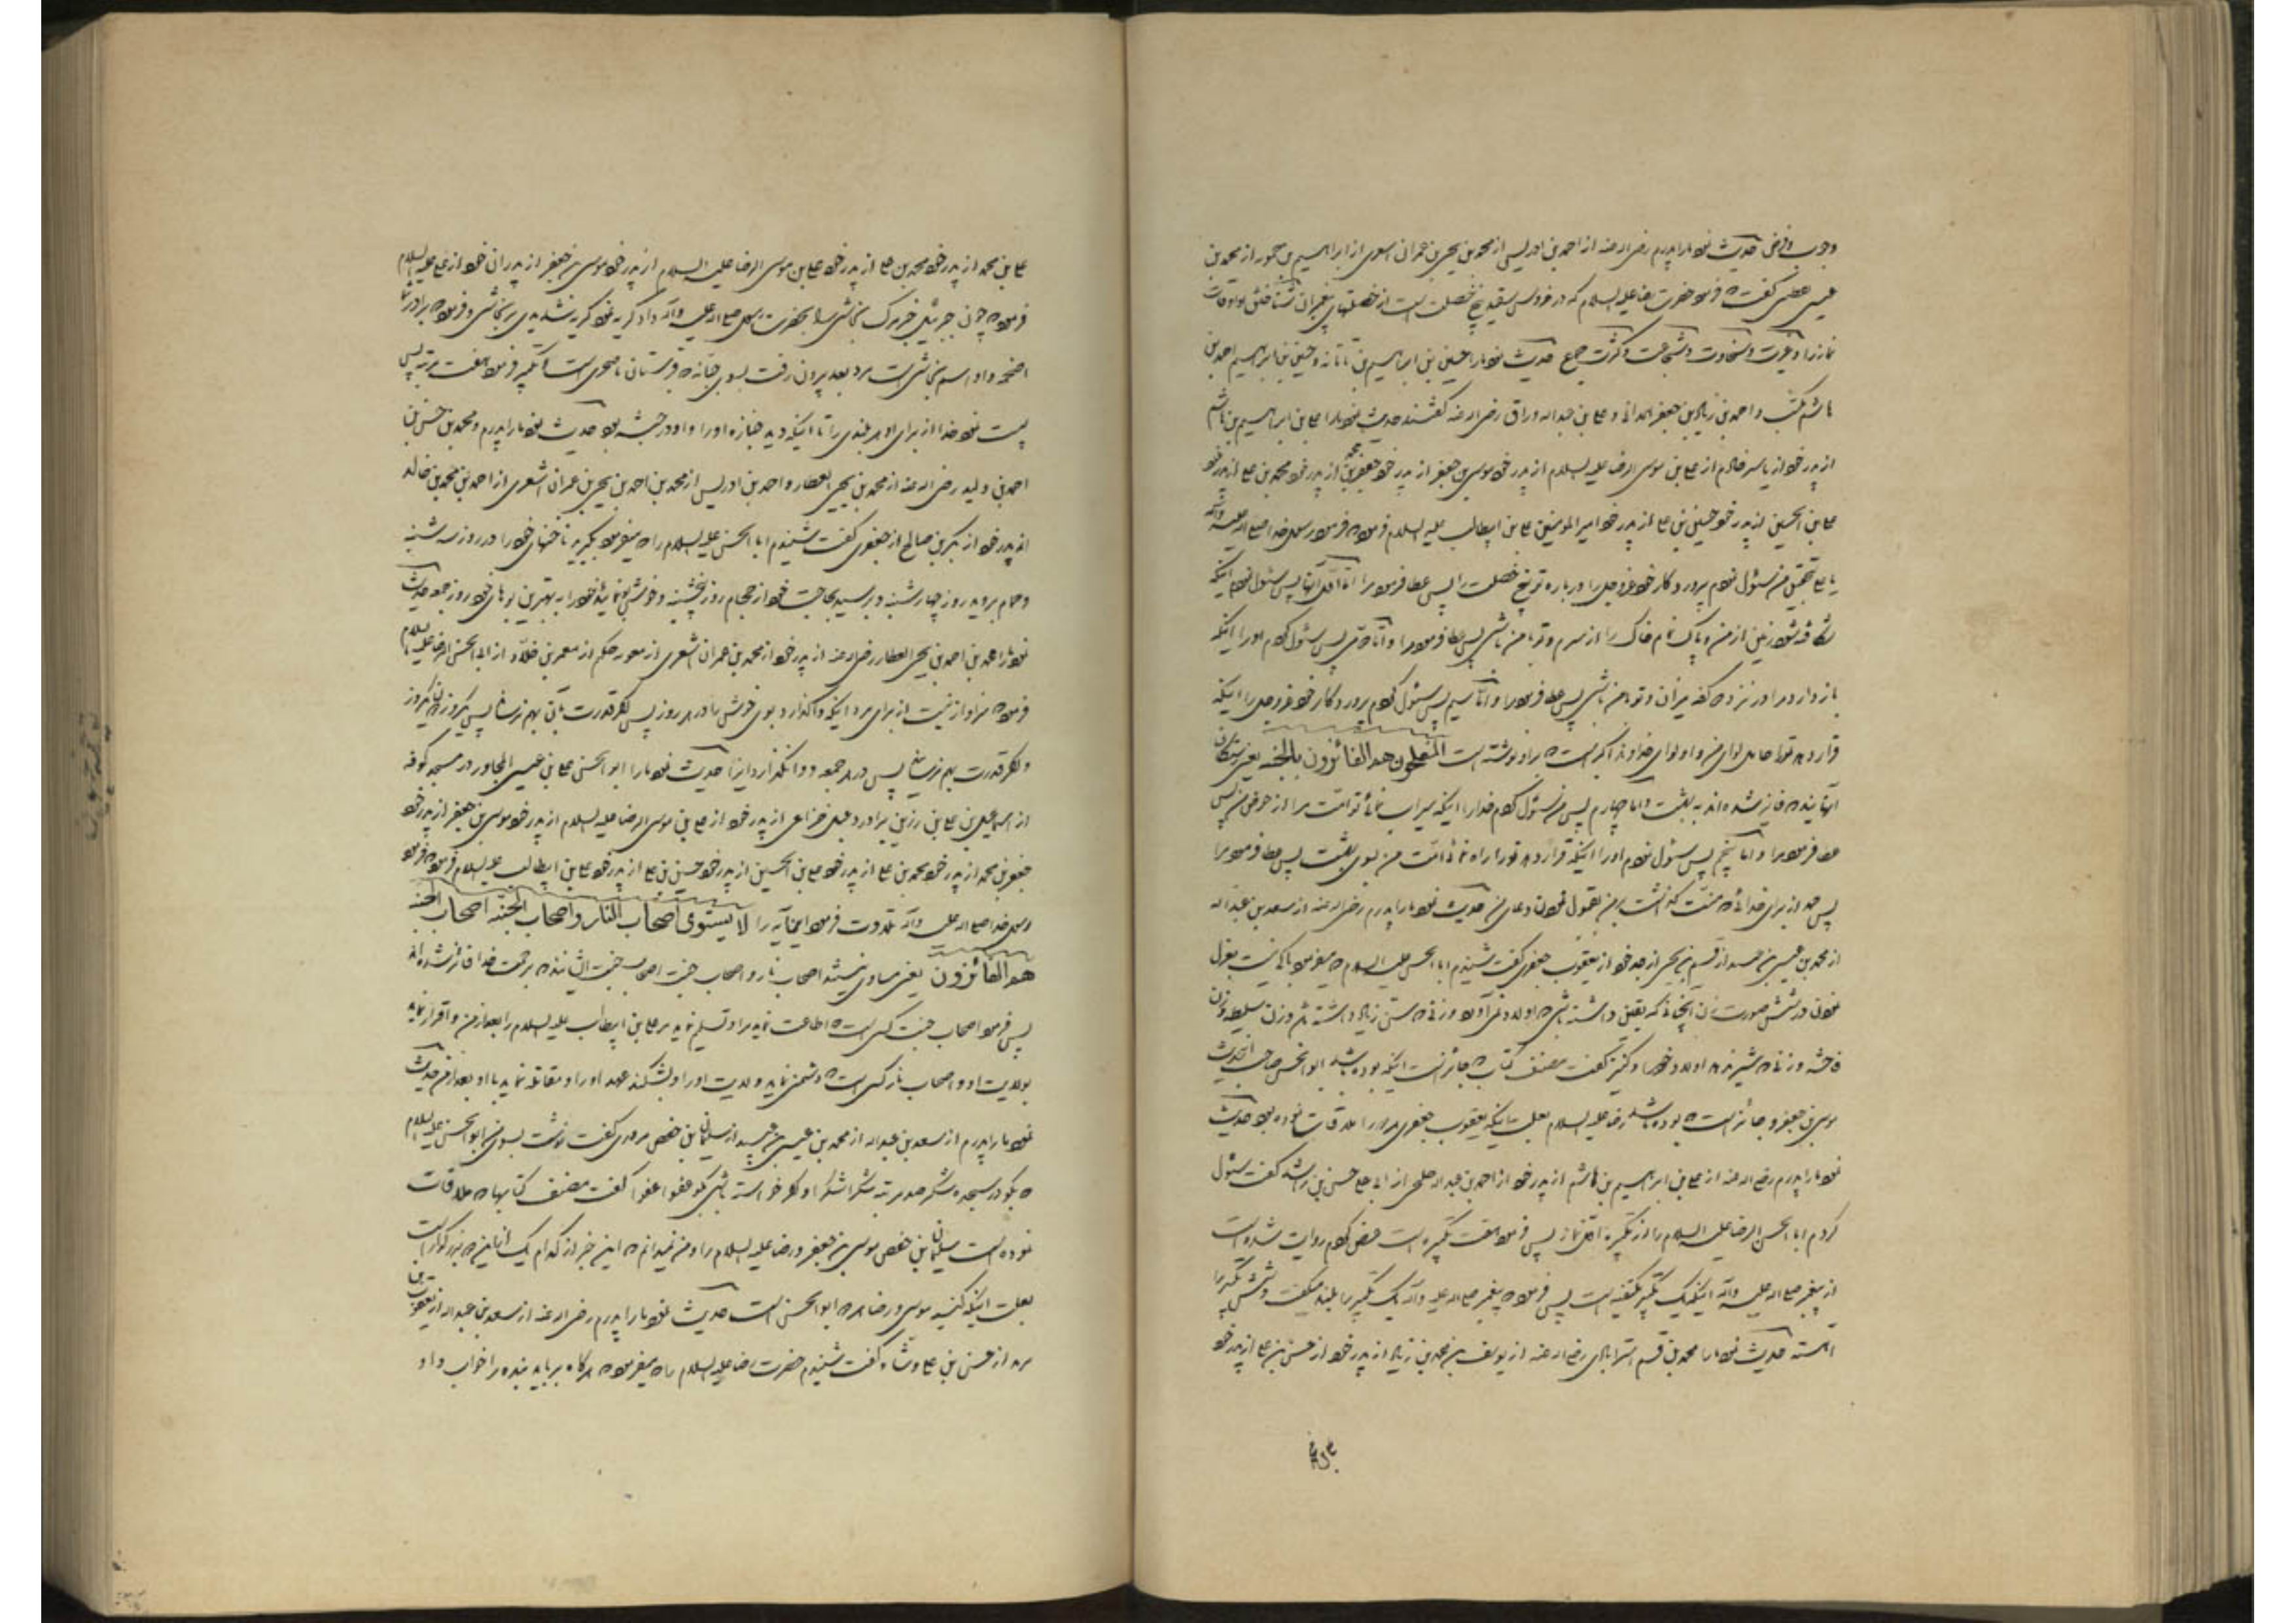 حدیث نمود ما را پدرم رضی الله عنه از احمد بن ادریس از محمد بن یحیی بن عمران اشعری از ابراهیم بن حمویه از محمد بن
عیسی یقطینی گفت که فرمود حضرت رضا علیه السلام که در خروس سفید پنج خصلت است از خصلتهای پیغمبران شناختن او اوقات
نماز را و غیرت و سخاوت و شجاعت و کثرت جمع حدیث نمود ما را حسین بن ابراهیم بن تاتانه و حسین بن ابراهیم احمد بن
هاشم مکتب و احمد بن زیاد بن جعفر همدانی و علی بن عبدالله وراق رضی الله عنه گفتند حدیث نمود ما را علی بن ابراهیم بن هاشم
از پدر خود از یاسر خادم از علی بن موسی الرضا علیه السلام از پدر خود موسی بن جعفر از پدر خود جعفر بن محمد از پدر خود محمد بن علی از پدر خود
علی بن الحسین از پدر خود حسین بن علی از پدر خود امیر المومنین علی بن ابیطالب علیه السلام فرمود که فرمود رسول خدا صلی الله علیه وآله
یا علی بتحقیق من سئول نمودم پرورد کار خود عزوجل را در باره تو پنج خصلت را پس عطا فرمود مرا اما اول آنها پس سئول نمودم اینکه
شکافته شود زمین از من و پاک نمایم خاک را از سرم و تو با من باشی پس عطا فرمود مرا و اما دومی پس سئول کردم او را اینکه
باز دارد مرا در نزد کفه میزان و تو با من باشی پس عطا فرمود مرا و اما سیم پس سئول کردم پروردکار خود عزوجل را اینکه
قرار دهد تو را حامل لوای من و او لوای خداوند اکبر است که بر او نوشته است المفلحون هم الفائزون بالجنه یعنی رستکاران
آنهایند که فایز شده اند به بهشت و اما چهارم پس من سئول کردم خدا را اینکه سیراب نمائی تو امت مرا از حوض من پس
عطا فرمود مرا و اما پنجم پس سئول نمودم او را اینکه قرار دهد تو را راه نمای امت من بسوی بهشت پس عطا فرمود مرا
پس حمد از برای خدائی که منت گذاشت بمن بقبول نمودن دعای من حدیث نمود ما را پدرم رضی الله عنه از سعد بن عبدالله
از محمد بن عیسی بن عبید از قسم بن یحیی از جد خود از یعقوب جعفری گفت شنیدم ابا الحسن علیه السلام که میفرمود باکی نیست بعزل
نمودن در شش صورت زن آنچنانی که یقین داشته باشی که اولاد نمی آورد و زنی که سنش زیاد داشته باشد و زن سلیطه و زن
فاحشه و زنی که شیر ندهد اولاد خود را و کنیز گفت مصنف کتاب که جائز است اینکه بوده باشد ابو الحسن صاحب الحدیث
موسی بن جعفر و جائز است که بوده باشد رضا علیه السلام بعلت اینکه یعقوب جعفری هر دو را ملاقات نموده بود حدیث
نمود ما را پدرم رضی الله عنه از علی بن ابراهیم بن هاشم از پدر خود از احمد بن عبدالله خلجی از ابی علی حسن بن راشد گفت سئول
کردم ابا الحسن الرضا علیه السلام را از تکبیره اول نماز پس فرمود هفت تکبیره است عرض کردم روایت شده است
از پیغمبر صلی الله علیه وآله اینکه یک تکبیر میگفته است پس فرمود که پیغمبر صلی الله علیه وآله یک تکبیر را بلند میگفت و شش تکبیر را
آهسته حدیث نمود ما را محمد بن قسم استرابادی رضی الله عنه از یوسف بن محمد بن زیاد از پدر خود از حسن بن علی از پدر خود
علی بن محمد از پدر خود محمد بن علی از پدر خود علی بن موسی الرضا علیه السلام از پدر خود موسی بن جعفر از پدران خود از علی علیه السلام
فرمود که چون جبرئیل خبر مرک نجاشی را بحضرت رسول صلی الله علیه وآله داد گریه نمود گریه شدیدی بر نجاشی و فرمود که برادر شما
اضحمه و او اسم نجاشی است مرد بعد بیرون رفت بسوی جبانه که قبرستان یا صحرا است و تکبیر فرمود هفت مرتبه پس
پست نمود خدا از برای او هر بلندی را تا اینکه دید جنازه او را و او در حبشه بود حدیث نمود ما را پدرم و محمد بن حسن بن
احمد بن ولید رضی الله عنه از محمد بن یحیی العطار و احمد بن ادریس از محمد بن احمد بن یحیی بن عمران اشعری از احمد بن محمد بن خالد
از پدر خود از بکر بن صالح از جعفری گفت شنیدم ابا الحسن علیه السلام را که میفرمود بگیرید ناخنهای خود را در روز سه شنبه
و حمام بروید روز چهار شنبه و برسید بحاجت خود از حجام روز پنجشنبه و خوشبو نمائید خود را به بهترین بوهای خود روز جمعه حدیث
نمود ما را احمد بن محمد بن یحیی العطار رضی الله عنه از پدر خود از محمد بن عمران اشعری از معویه حکم از معمر بن خلاد از ابی الحسن الرضا علیه السلام
فرمود که سزاوار نیست از برای مرد اینکه واگذارد بوی خوش را در هر روز پس اگر قدرت بآن بهم نرساند پس یکروز نه یکروز
و اگر قدرت بهم نرساند پس در هر جمعه و وانگذارد این را حدیث نمود ما را ابو الحسن علی بن عیسی المجاور در مسجد کوفه
از اسماعیل بن علی بن رزین برادر دعبل خزاعی از پدر خود از علی بن موسی الرضا علیه السلام از پدر خود موسی بن جعفر از پدر خود
جعفر بن محمد از پدر خود محمد بن علی از پدر خود علی بن الحسین از پدر خود حسین بن علی از پدر خود علی بن ابیطالب علیه السلام فرمود که فرمود
رسول خدا صلی الله علیه وآله تلاوت فرمود این آیه را لا یستوی اصحاب النار و اصحاب الجنه اصحاب الجنه
هم الفائزون یعنی مساوی نیستند اصحاب نار و اصحاب جنت اصحاب جنت ایشانند که برحمت خدا فائز شده اند
پس فرمود اصحاب جنت کسی است که اطاعت نماید مرا و تسلیم نماید بر علی بن ابیطالب علیه السلام را بعد از من و اقرار نماید
بولایت او و اصحاب نار کسی است که دشمن نماید ولایت او را و بشکند عهد او را و مقاتله نماید با او بعد از من حدیث
نمود ما را پدرم از سعد بن عبدالله از محمد بن عیسی بن عبید از سلیمان بن حفص مروزی گفت نوشت بسوی من ابو الحسن علیه السلام
که بگو در سجده شکر صد مرتبه شکرا شکرا و اگر خواسته باشی بگو عفوا عفوا گفت مصنف کتاب که ملاقات
نموده است سلیمان بن حفص موسی بن جعفر و رضا علیه السلام را و من نمیدانم که این خبر از کدام یک از این دو بزرگوار است
بعلت اینکه کنیه موسی و رضا هر دو ابو الحسن است حدیث نمود ما را پدرم رضی الله عنه از سعد بن عبدالله از یعقوب بن
یزید از حسن بن علی وشاء گفت شنیدم حضرت رضا علیه السلام را که میفرمود هرگاه برباید بنده را خواب و او